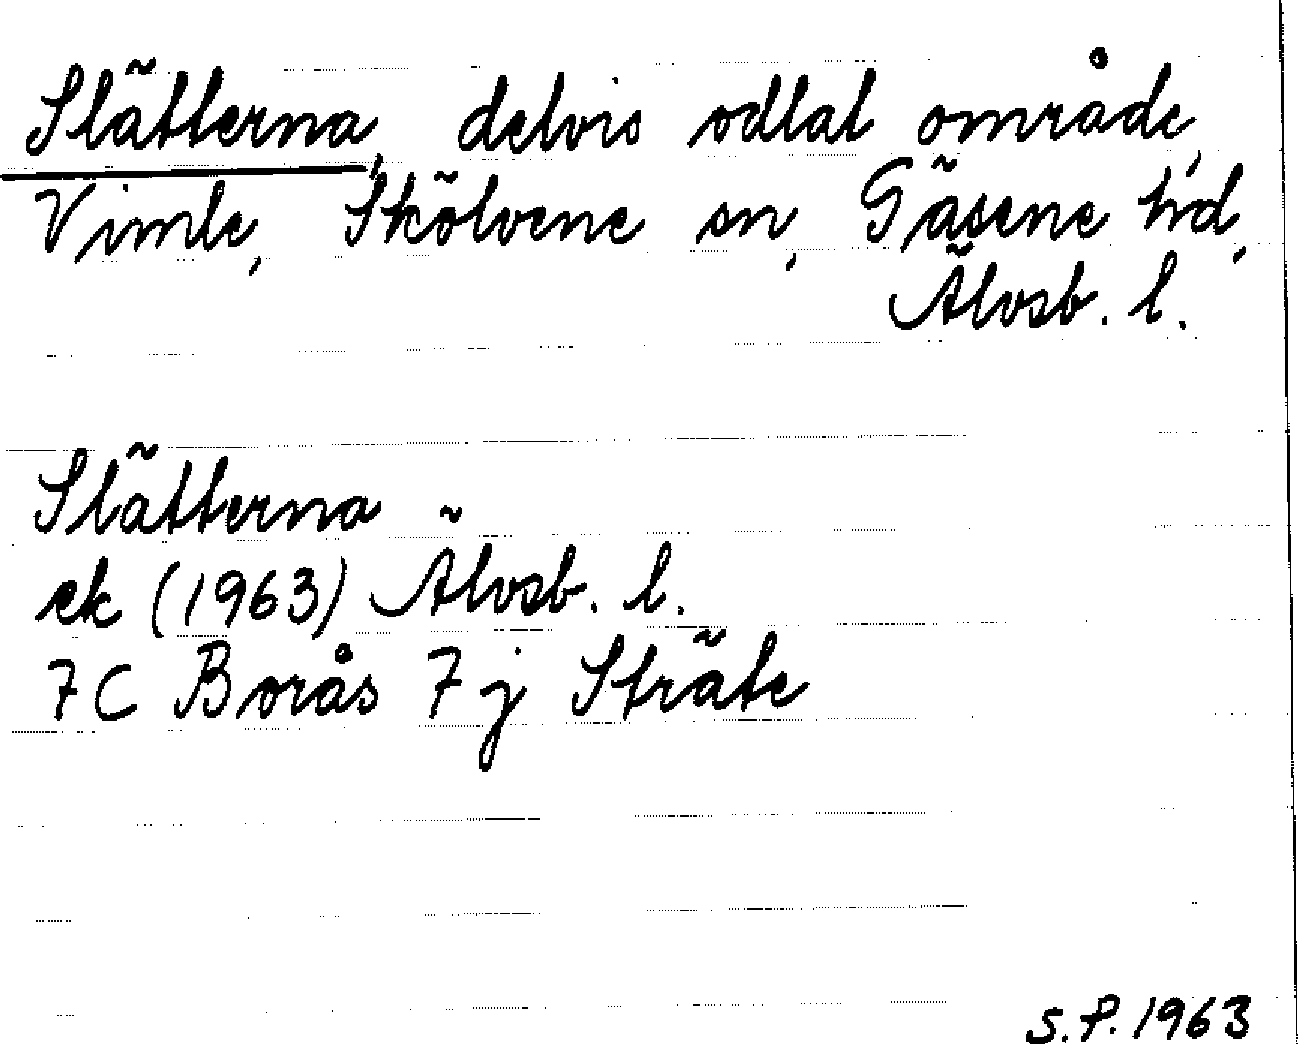 Slätterna, delvis odlat område,
Vimle, Skölvene sn, Gäsene hd,
Älvsb. l.
Slätterna
ek (1963) Älvsb. l.
7C Borås 7j Sträte
S.P. 1963